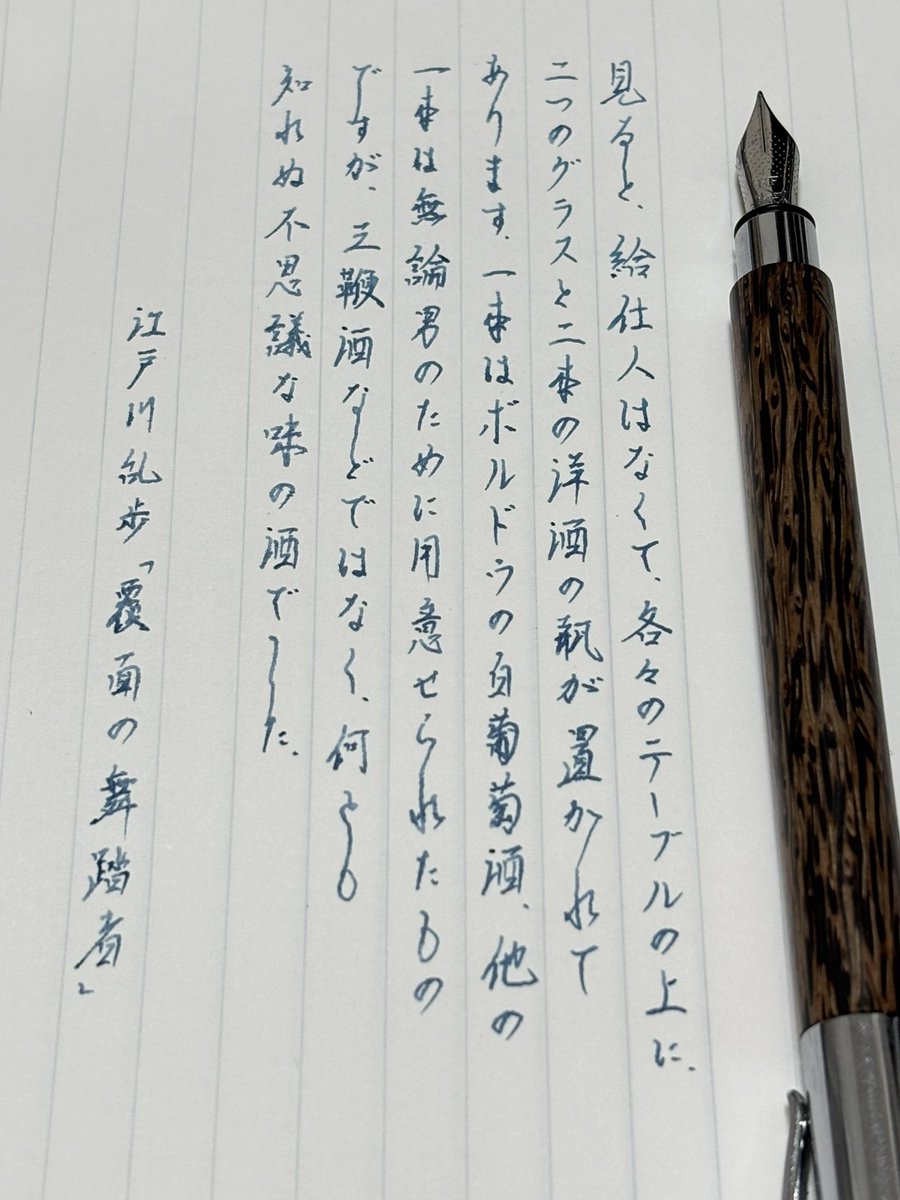 見ると、給仕人はなくて、各々のテーブルの上に、
二つのグラスと二本の洋酒の瓶が置かれて
あります。一本はボルドウの白葡萄酒、他の
一本は無論男のために用意せられたもの
ですが、三鞭酒などではなく、何とも
知れぬ不思議な味の酒でした。
江戸川乱歩「覆面の舞踏者」